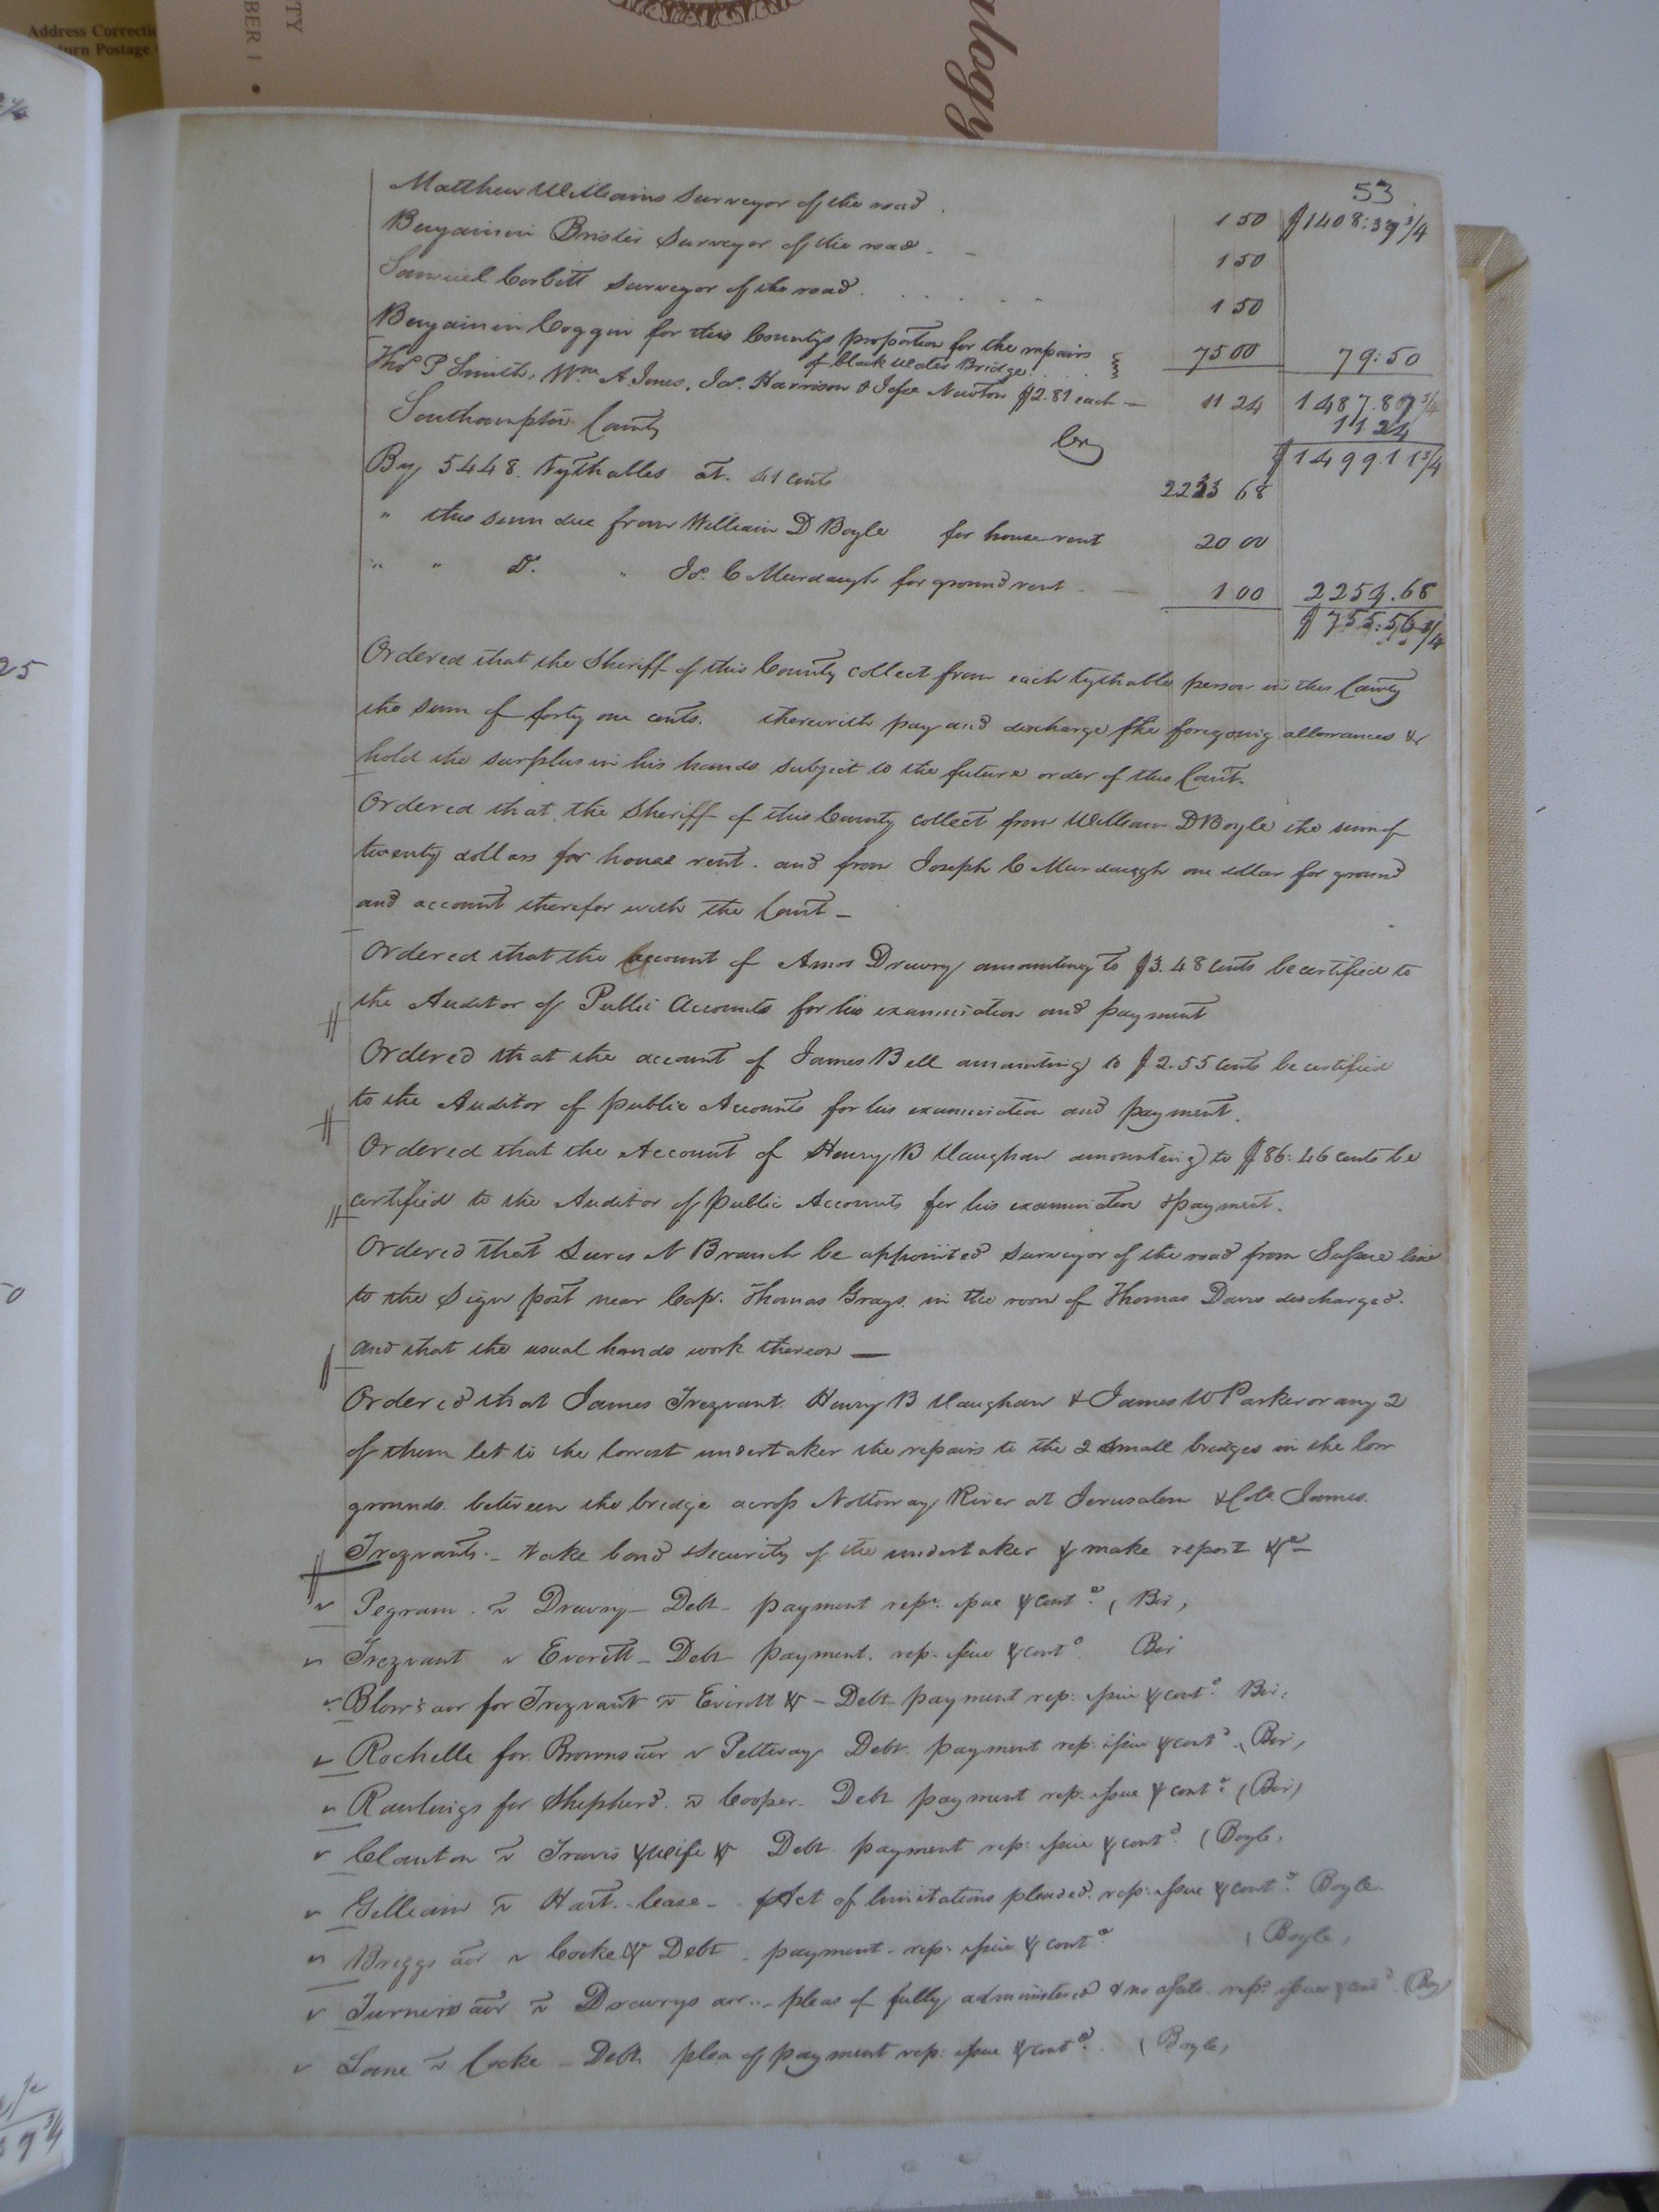 Address Correctio
turn Postage
BER 1 •
TY
ulogy
53
Matthew Williams Surveyor of the road . 1 50 $1408:37 3/4
Benjamin Brister Surveyor of the road - - 1 50
Samuel Corbitt surveyor of the road . . . . . 1 50
Benjamin Coggin for this Countys proportion for the repairs
of black water Bridge . . . . 75 00 79:50
Thos P Smith, Wm A Jones, Jas. Harrison & Jesse Newton $2.81 each — 11 24 1487.87 3/4
11.24
Southampton County Cr $1499.11 3/4
By 5448. tythables at. 41 cents 2233 68
" this sum due from William D Boyle for house rent 20 00
" " Do. " Jos. C Murdaugh for ground rent - — 1 00 2254.68
$755:56 3/4
Ordered that the Sheriff of this County collect from each tythable person in this County
the sum of forty one cents. therewith pay and discharge the foregoing allowances &
hold the surplus in his hands subject to the future order of this Court.
Ordered that the Sheriff of this County collect from William D Boyle the sum of
twenty dollars for house rent. and from Joseph C Murdaugh one dollar for ground
and account therefor with the Court —
Ordered that the account of Amos Drewry amounting to $3.48 Cents be certified to
the Auditor of Public Accounts for his examination and payment
Ordered that the account of James Bell amounting to $2.55 Cents be certified
to the Auditor of public Accounts for his examination and payment.
Ordered that the Account of Henry B Vaughan amounting to $86:46 cents be
certified to the Auditor of public Accounts for his examination & payment.
Ordered that N Branch be appointed surveyor of the road from Sussex line
to the Sign post near Cap. Thomas Grays. in the room of Thomas Davis discharged.
and that the usual hands work thereon —
Ordered that James Trezvant. Henry B Vaughan & James W Parker or any 2
of them let to the lowest undertaker the repairs to the 2 small bridges in the low
grounds. between the bridge across Nottoway River at Jerusalem & Colo. James.
Trezvants. - take bond & security of the undertaker & make report &c —
Pegram . v Drewry — Debt - payment rep. issue & contd. ( Bir,
Trezvant v Everett — Debt payment. rep. issue & contd. Bir
Blow's aor for Trezvant v Everett & — Debt payment rep: issue & contd. Bir:
Rochelle for. Browns aor v Pettway Debt. payment rep: issue & contd. (Bir,
Rawlings for Shepherd. v Cooper. Debt payment rep. issue & contd. (Bir)
Clanton v Travis & wife & Debt. payment rep: issue & contd. (Boyle,
Gilliam v Hart. Case — Act of limitations pleaded. rep. issue & contd. Boyle
Briggs aor v Cocke & Debt — payment - rep: issue & contd. (Boyle,
Turners aor v Drewrys aor.. - pleas of fully administered & no assets. rep. issue & contd. (Boy
Lane v Cocke — Debt plea of payment rep: issue & contd. (Boyle,
25